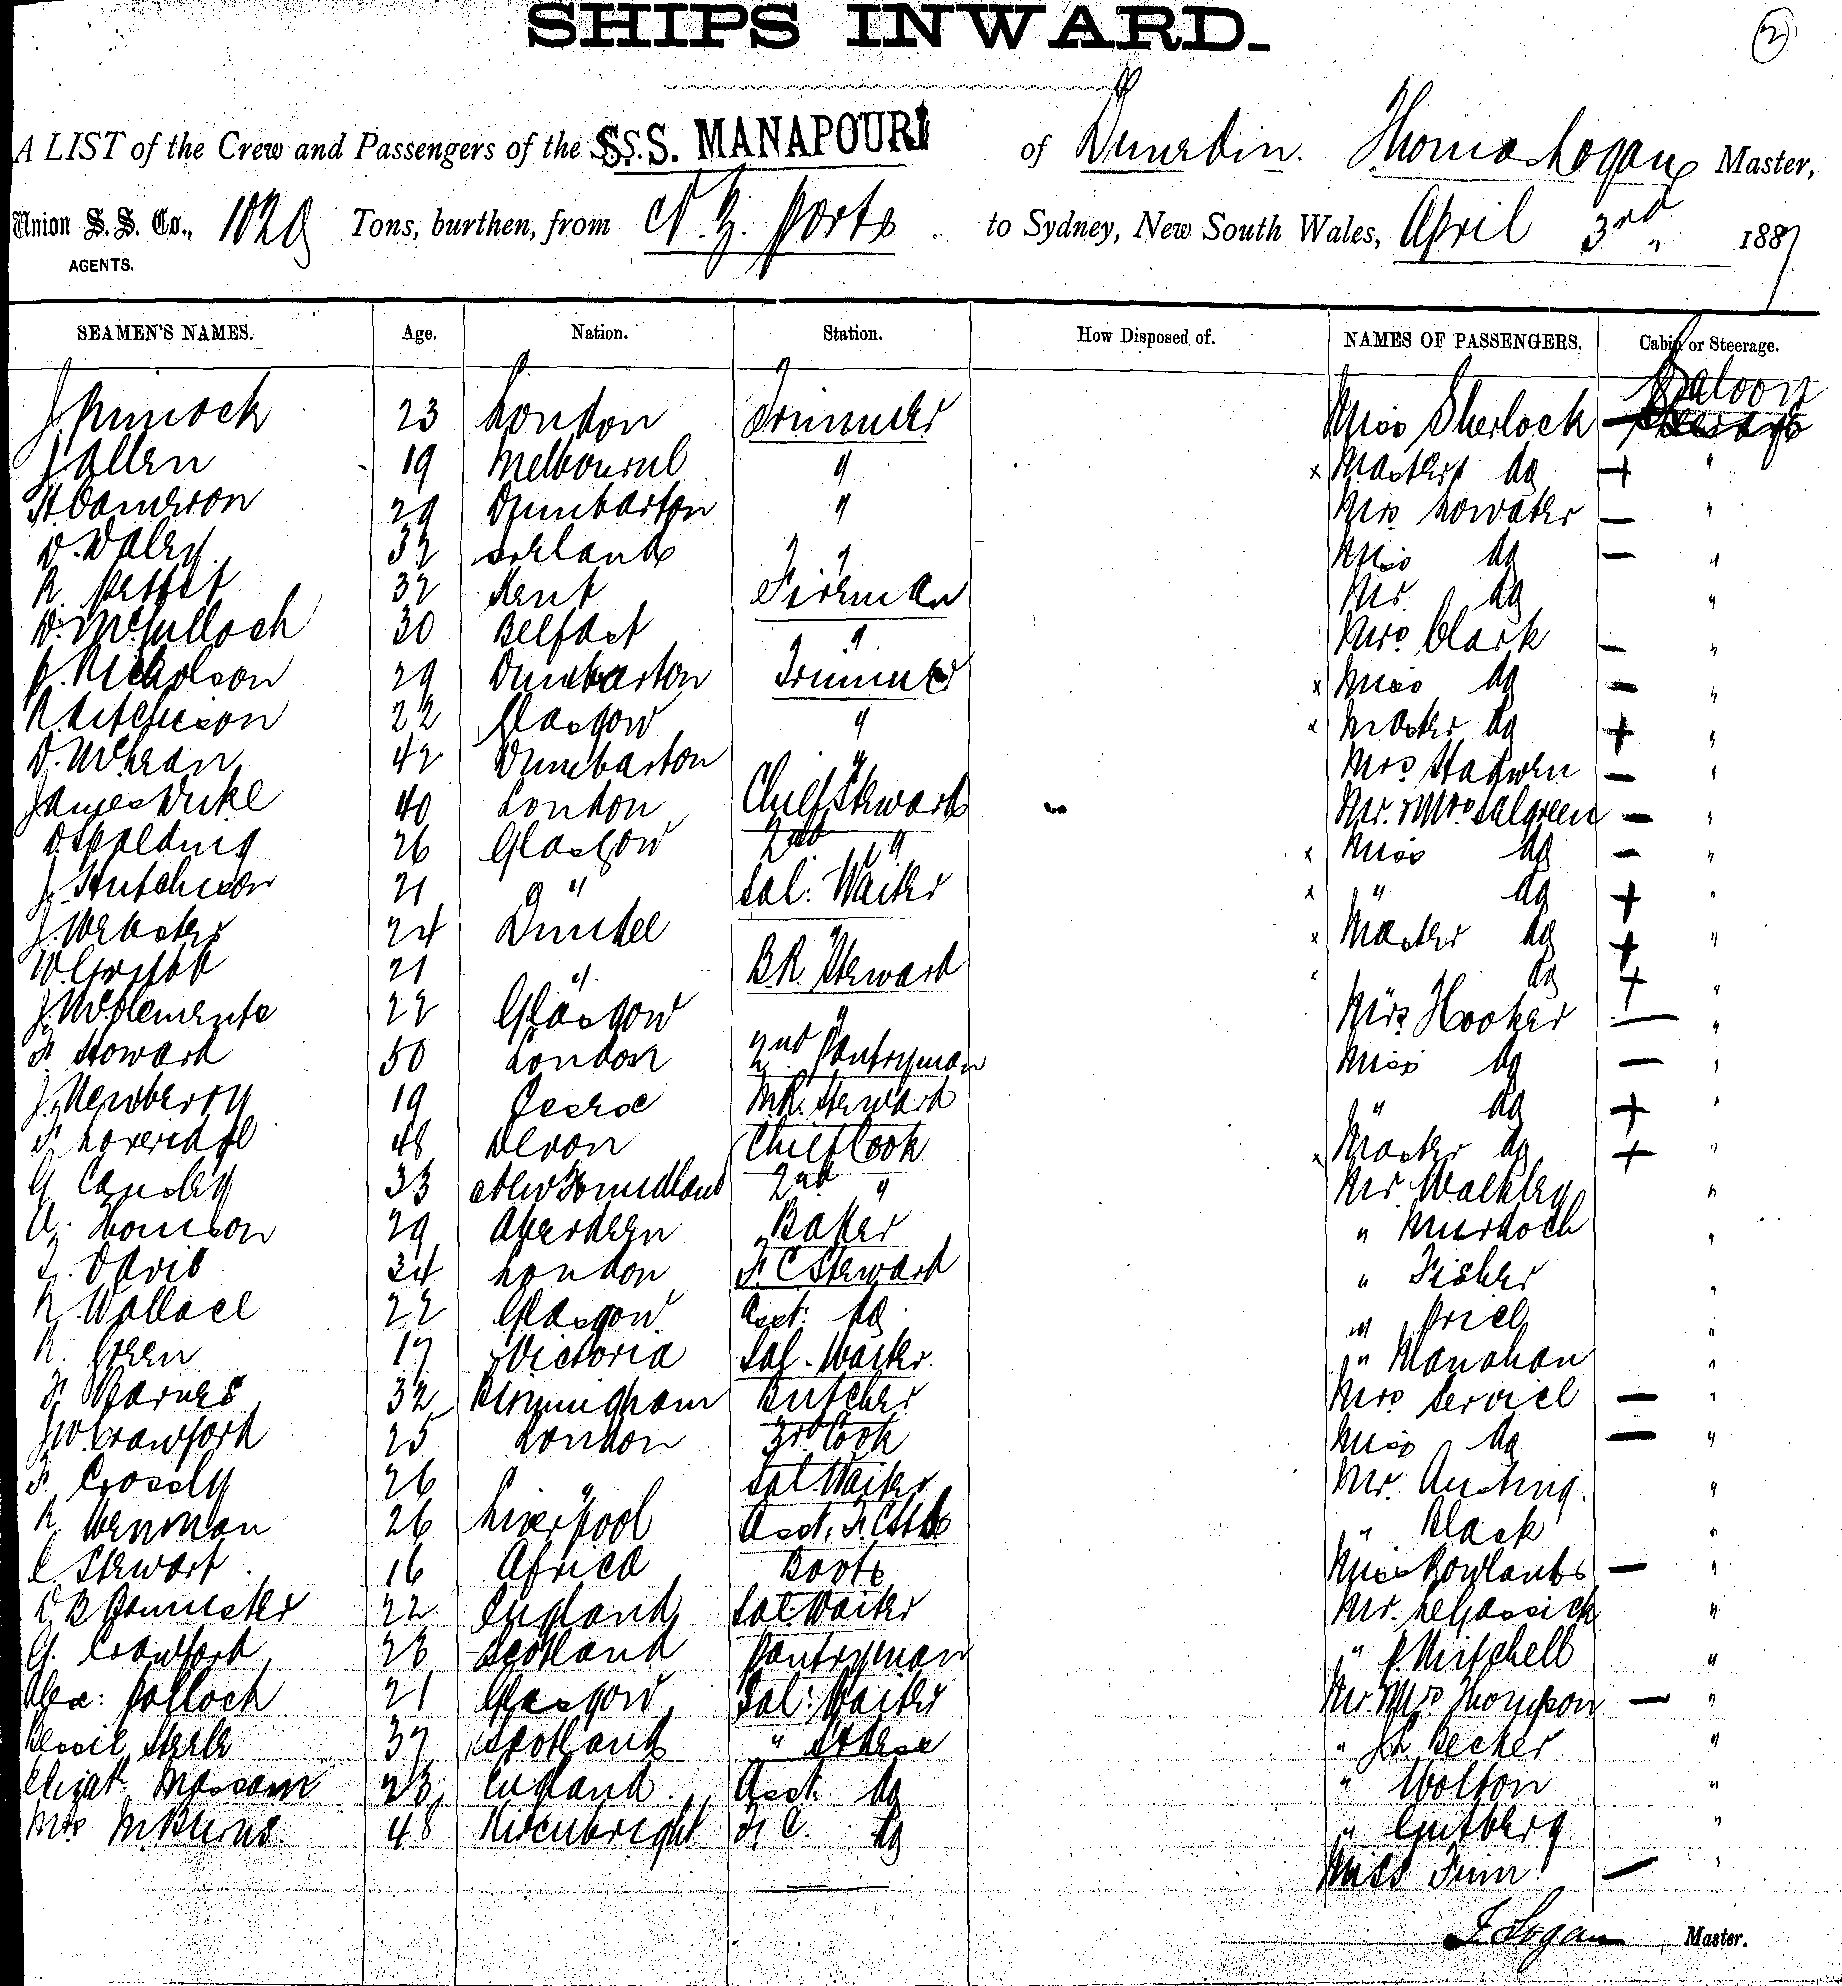 SHIPS INWARD.
2
A LIST of the Crew and Passengers of the S.S. MANAPOURI of Dunedin. Thomas Logan Master,
Union S. S. Co., 1020 Tons, burthen, from N. Z. Ports to Sydney, New South Wales, April 3rd 1887
AGENTS.
SEAMEN'S NAMES. Age. Nation. Station. How Disposed of. NAMES OF PASSENGERS. Cabin or Steerage.
Saloon
J. 23 London Trimmer Miss Sherlock —
J Allen 19 Melbourne " x Masters do + "
H. Cameron 29 Dumbarton " Mrs Lowater — "
D. Daley 32 Ireland " Miss do — "
R. 32 Kent Fireman Mr. do "
D. McCulloch 30 Belfast " Mrs. Clark — "
J. Nicholson 29 Dumbarton Trimmer x Miss do — "
R Aitchison 22 Glasgow " x Master do + "
D. McLean 42 Dumbarton " Mrs —  "
James Duke 40 London Chief Steward Mr. & Mrs — "
D Spalding 26 Glasgow 2nd " x Miss do — "
J. Hutchison 21 " Sal: Waiter x " do + "
J. Webster 24 Dundee " x Master do + "
W 21 " B.R. Steward do + "
J. McClements 22 Glasgow " Mrs. Hooker — "
F. Howard 50 London 2nd Pantryman Miss do — "
J. Newberry 19 M.R. Steward " do + "
F. Loveridge 48 Devon Chief Cook x Master do + "
G Cansley 33 2nd " Mr Walkley "
A. Thomson 29 Aberdeen Baker " Murdoch "
T. Davis 34 London F. C Steward " Fisher "
R. Wallace 22 Glasgow Asst: do " Price "
R. Green 17 Victoria Sal. Waiter. " Manahan "
F. Barnes 32 Birmingham Butcher Mrs Service — "
J W Crawford 25 London 3rd Cook Miss do — "
F. Crossly 26 " Sal. Waiter Mr. "
R Wenman 26 Liverpool Asst. F. C " Black "
C Stewart 16 Africa Boots Miss Rowlands — "
C B Bannister 22 England Sal. Waiter Mr. LeGassick "
G. Crawford 28 Scotland Pantryman " P. Mitchell "
Alex: Pollock 21 Glasgow Sal: Waiter Mr. Mrs Thompson — "
Bessie Steele 37 Scotland " " Becker "
Elizabt. Massam 23 England Asst. do " Wolton "
Mrs McBurns 48 F. C. do " Gutberg "
Miss — "
T. Logan Master.